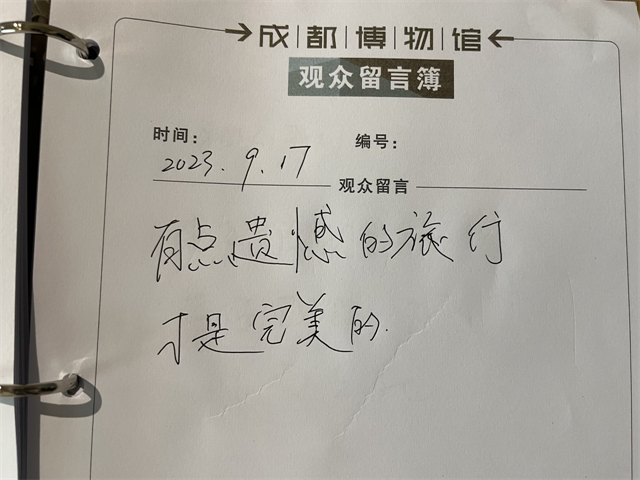 成都博物馆
观众留言簿
时间： 编号：
2023.9.17
观众留言
有点遗憾的旅行
才是完美的.